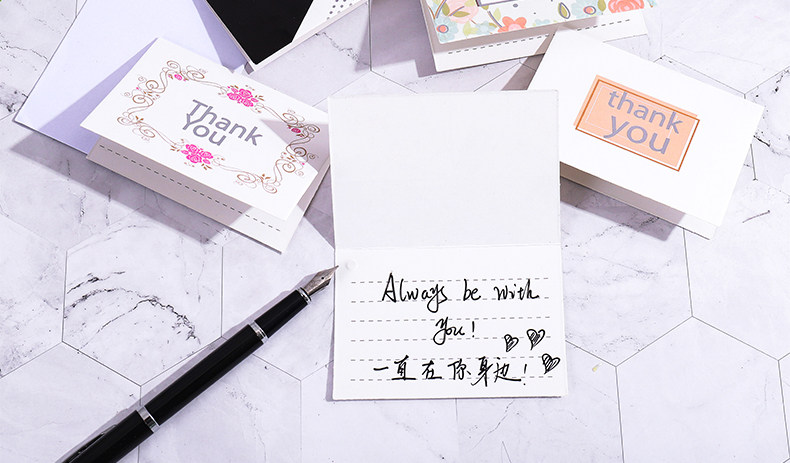 Thank
You
thank
you
Always be with
you!
一直在你身边!